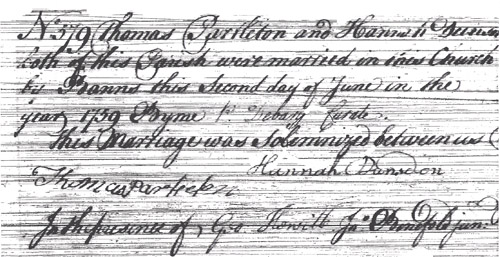 No. 579 Thomas Partleton and Hannah
both of this Parish were married in this Church
by Banns this Second day of June in the
year 1759 Byme P. Debary Curate.
This Marriage was Solemnized between us
Hannah Dunsdon
Thomas
In the presence of Geo. Hewitt Jas. jun: